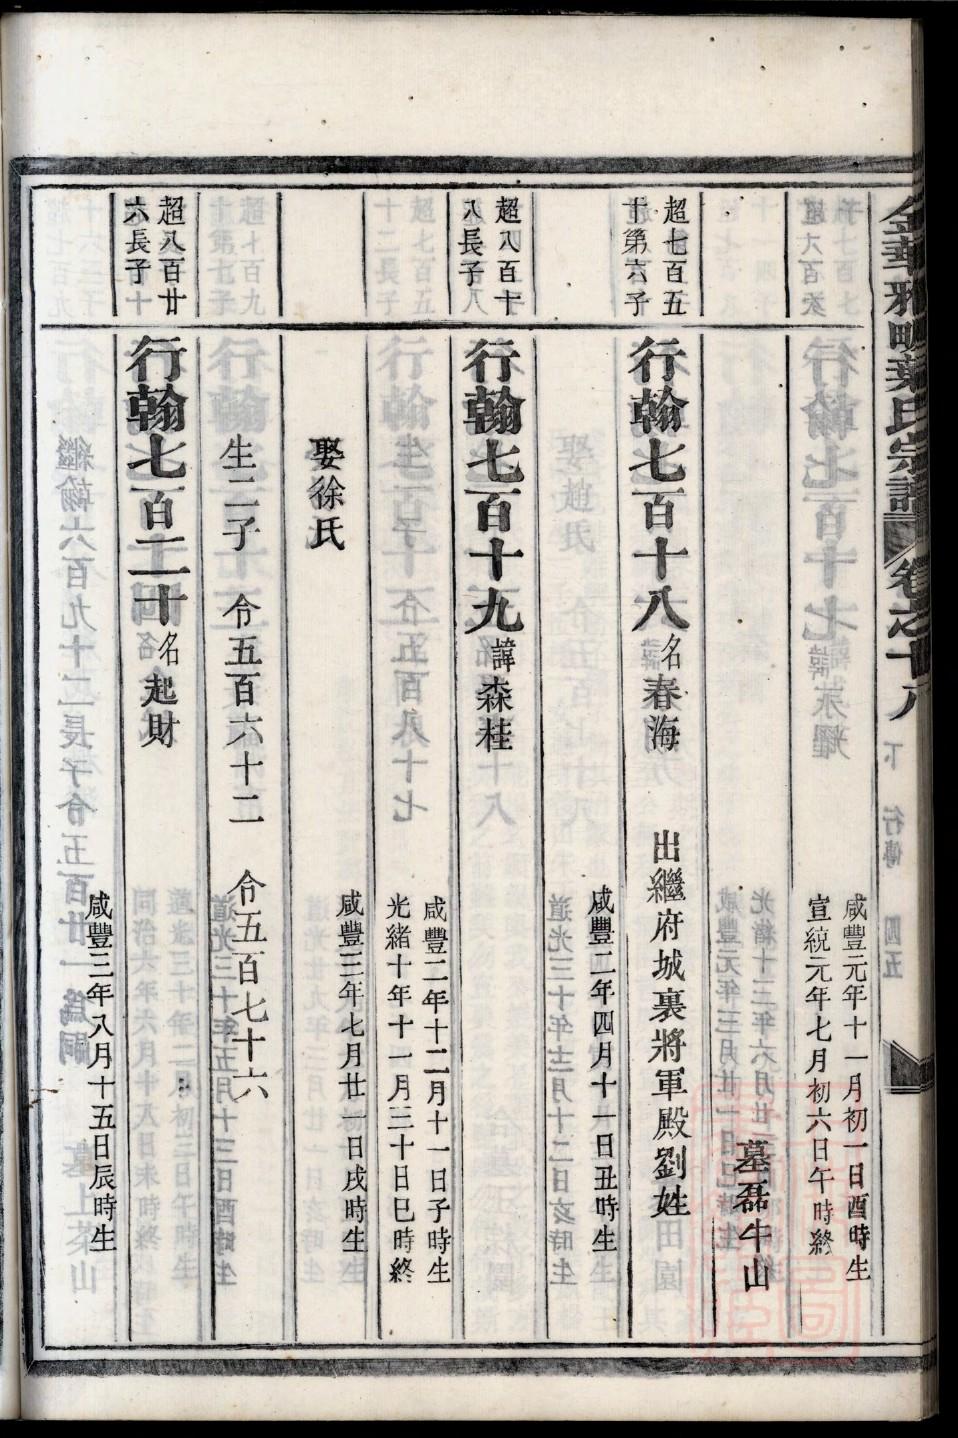 金華雅畈葉氏宗譜 卷之十八 下 行傳 四五
咸豐元年十一月初一日酉時生
宣統元年七月初六日午時終
墓磊牛山
超七百五十第六子
行翰七百十八 名春海 出繼府城裏將軍殿劉姓
咸豐二年四月十一日丑時生
超八百十八長子
行翰七百十九 諱森桂
咸豐二年十二月十一日子時生
光緒十年十一月三十日巳時終
娶徐氏 咸豐三年七月廿一日戌時生
生二子 令五百六十二 令五百七十六
超八百廿六長子
行翰七百二十 名起財
咸豐三年八月十五日辰時生